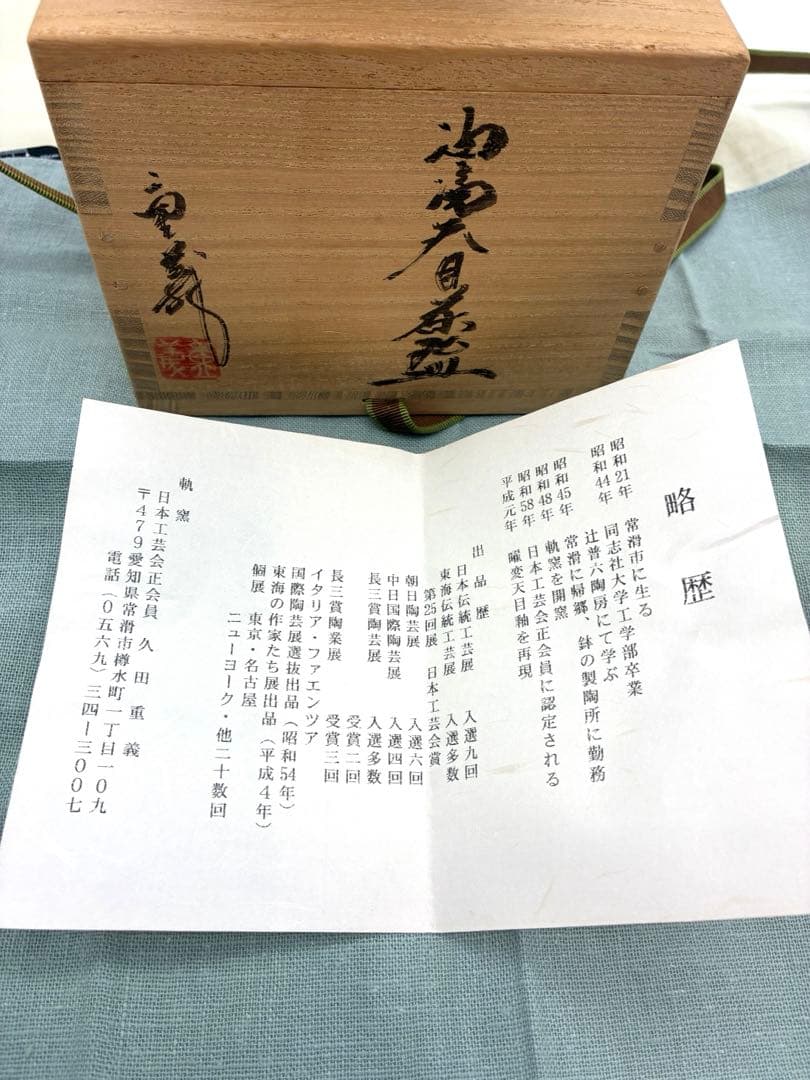 油滴天目茶盌
重義
略歴
昭和21年 常滑市に生る
昭和44年 同志社大学工学部卒業
辻晋六陶房にて学ぶ
昭和45年 常滑に帰郷、鉢の製陶所に勤務
昭和48年 軌窯を開窯
昭和58年 日本工芸会正会員に認定される
平成元年 曜変天目釉を再現
出品歴
日本伝統工芸展 入選九回
東海伝統工芸展 入選多数
第25回展 日本工芸会賞
朝日陶芸展 入選六回
中日国際陶芸展 入選四回
長三賞陶芸展 入選多数
受賞二回
長三賞陶業展 受賞三回
イタリア・ファエンツア
国際陶芸展選抜出品(昭和54年)
東海の作家たち展出品(平成4年)
個展 東京・名古屋
ニューヨーク・他二十数回
軌窯
日本工芸会正会員 久田重義
〒479愛知県常滑市樽水町一丁目一〇九
電話(〇五六九)三四ー三〇〇七